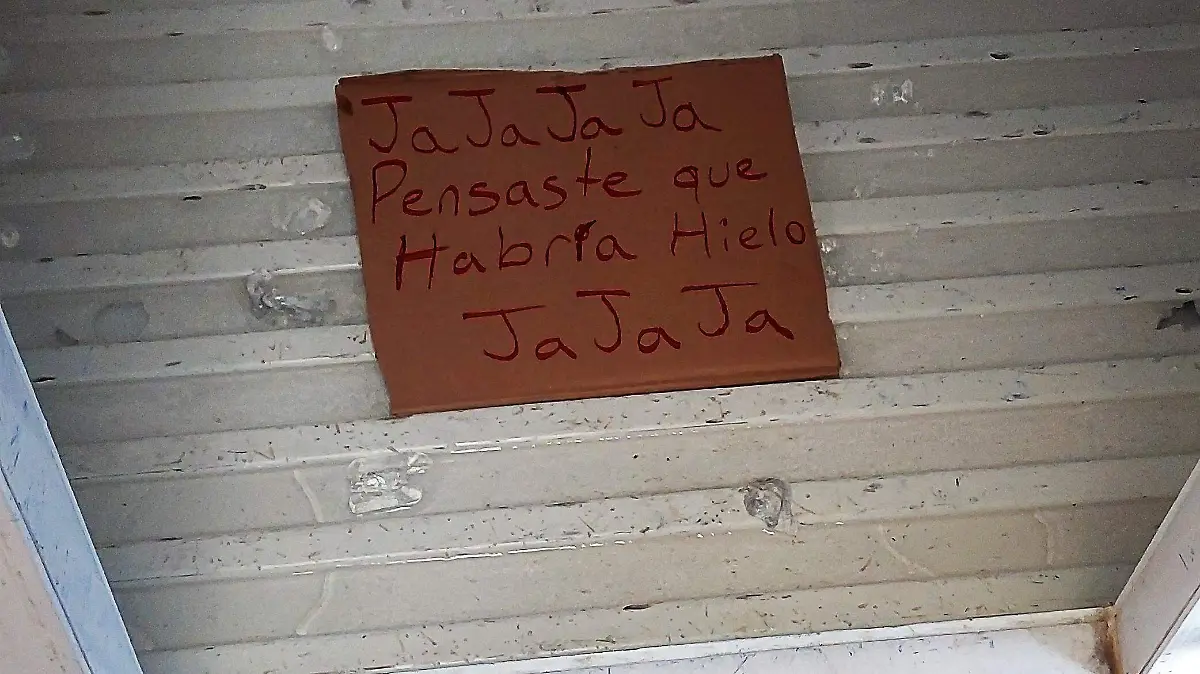 Ja Ja Ja Ja
Pensaste que
Habría Hielo
Ja Ja Ja